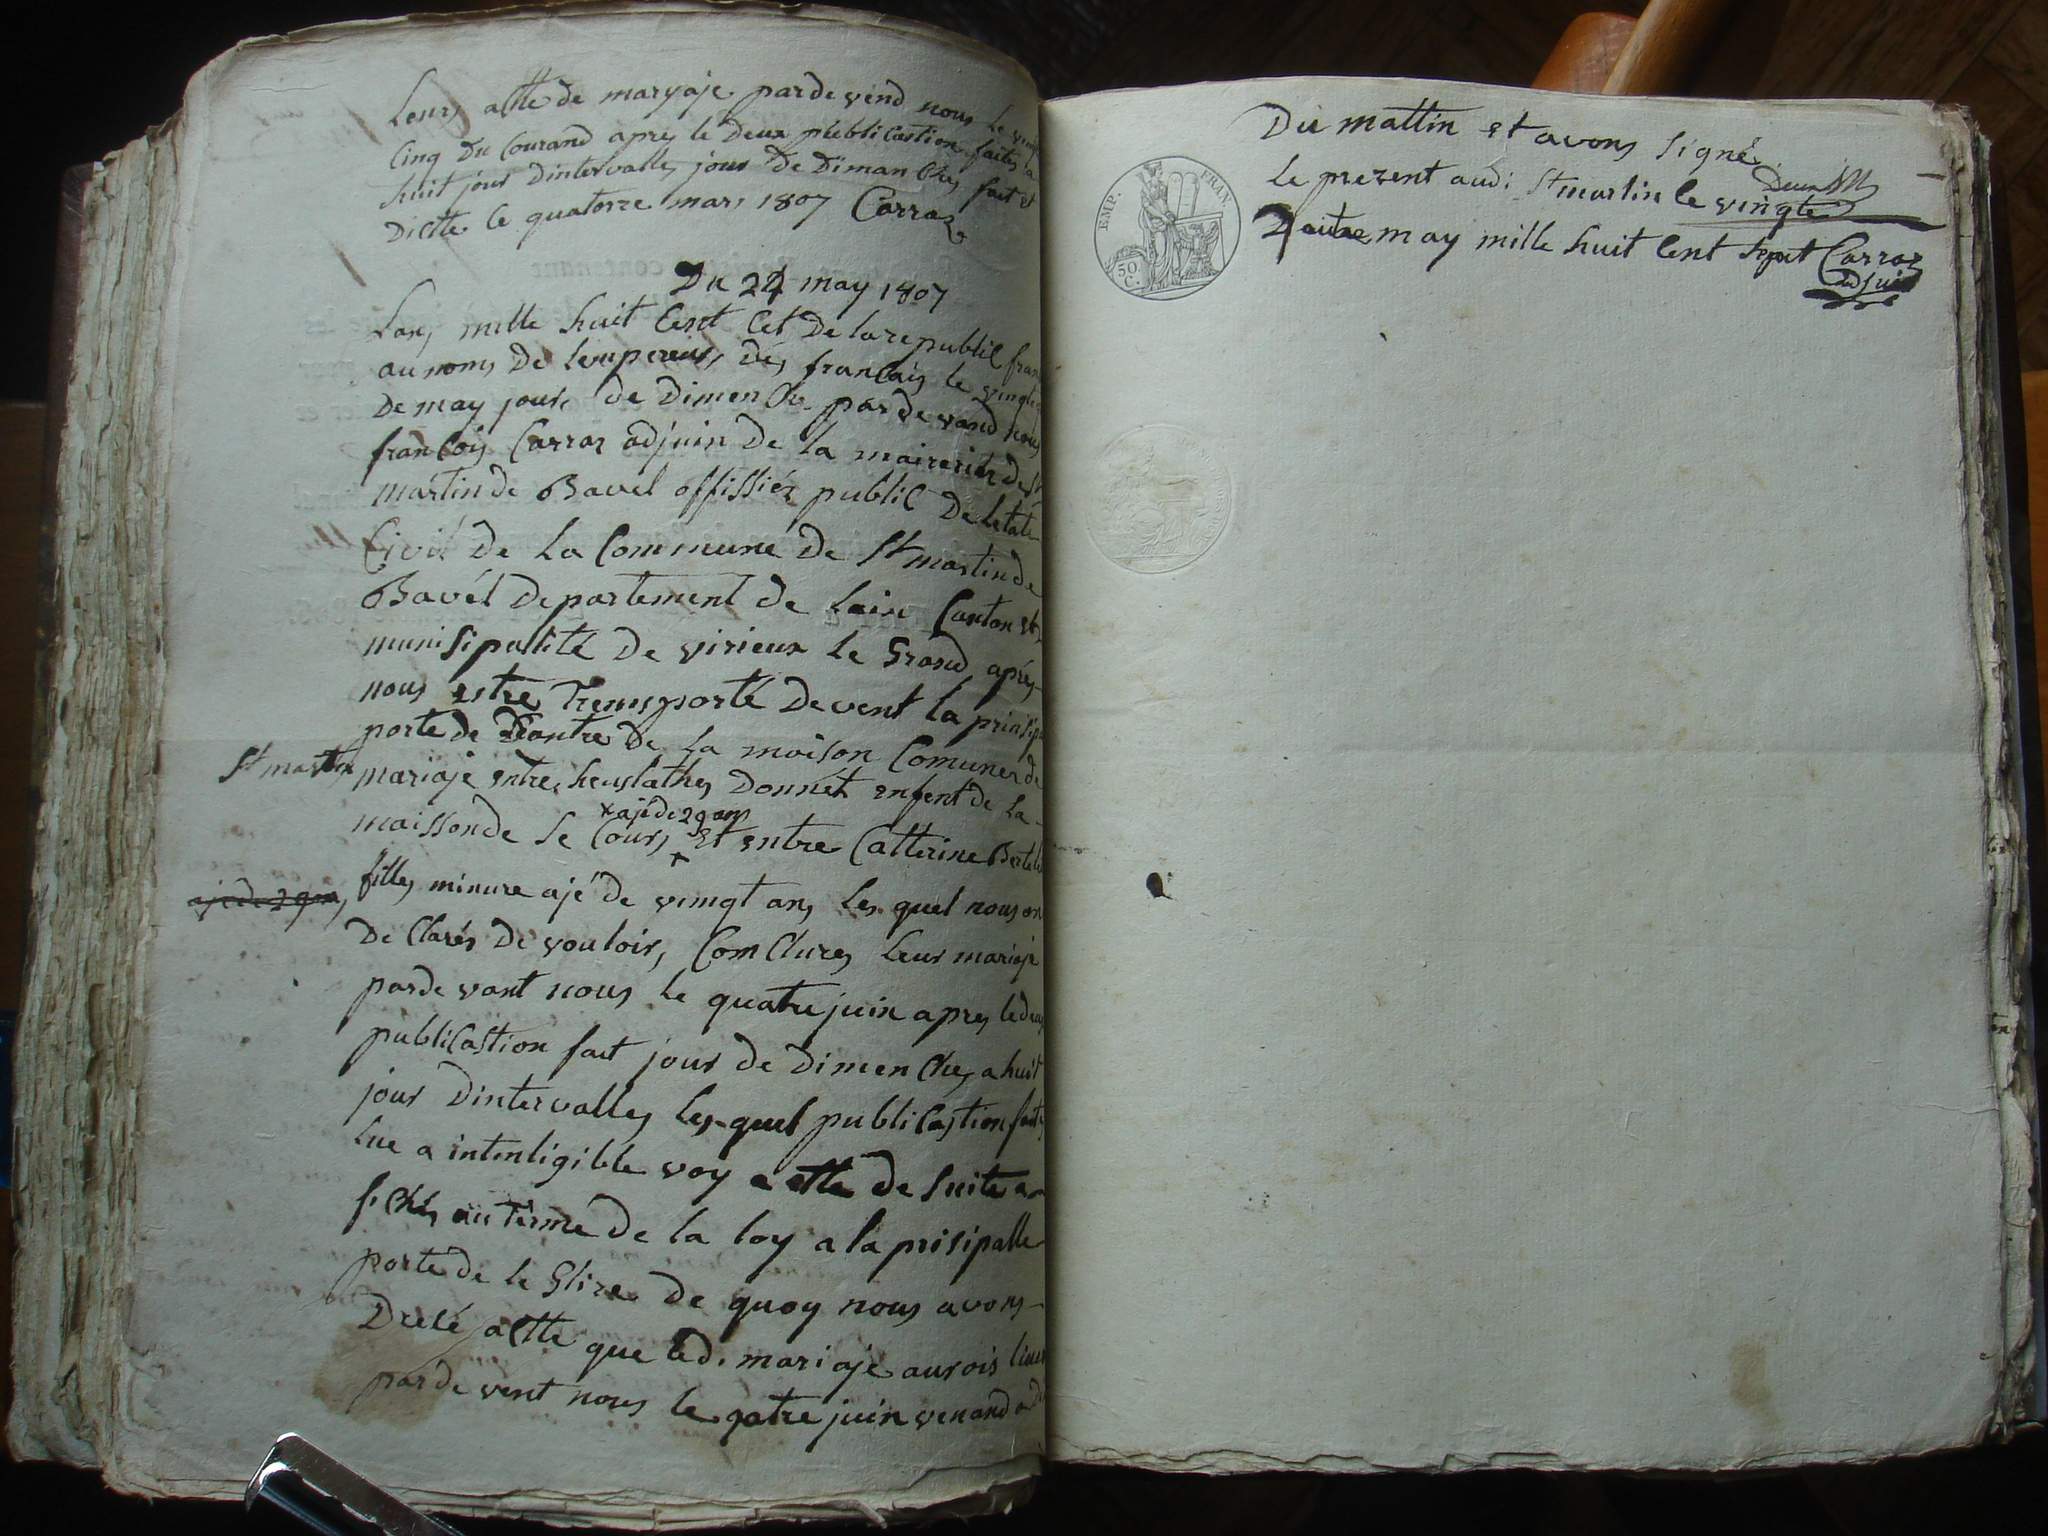 Leurs actte de maryaje pardevend nous le
Cinq Du Courand apres le Deux publicastion faites a
huit jour Dintervalles jour De Dimanches fait et
Dictte le quatorze mars 1807 Carraz
Du 24 may 1807
Lans mille huit Cent Cet De la republic
au noms De lempereurs des francais le
De may jours de Dimenche pardevand nous
francois Carraz adjuin De la mairerier de St
martin de Bavel offissiér public De letate
Civil de La Commune De St martin de
Bavél Departement de Lain Canton et
munisipalité De virieux Le Grand après
nous estre Transporté Devent la
porte de De La maison Comuner de
St martin mariaje entre heustathes Donnét enfent de La
x ajé de 29 ans
maisson de Se Cours x Et entre Catterine
ajé de 29 ans
filles minure ajé de vingt ans Les quel nous on
De Clarés De vouloirs Comclures Leur mariaje
pardevant nous Le quatre juin apres le deux
publicastion fait jour de Dimenches a huit
jour Dintervalles Les quel publicastion faits
Lue a intenligible voy e ette de suite a
fichés au terme De la loy a la prisipalle
porte De le Glize De quoy nous avons
Drecé actte que led. mariaje aurois
pardevent nous le qatre juin venand a
Du mattin et avons signé
le prezent audi St martin le vingte
may mille huit Cent Sept Carraz
adjuin
EMP. FRAN.
50.
C.